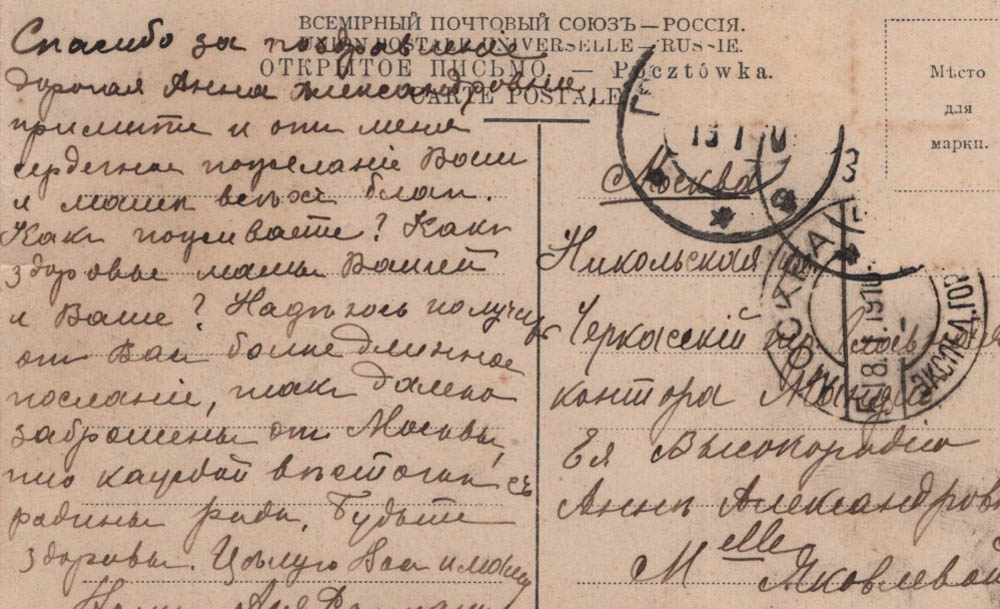 ВСЕМІРНЫЙ ПОЧТОВЫЙ СОЮЗЪ — РОССІЯ.
UNION POSTALE UNIVERSELLE — RUSSIE.
ОТКРЫТОЕ ПИСЬМО. — Pocztówka.
CARTE POSTALE
Мѣсто
для
марки.
Спасибо за поздравленіе
дорогая Анна Александровна,
примите и отъ меня
сердечное пожеланіе Вамъ
и мамѣ всѣхъ благ.
Какъ поживаете? Какъ
здоровье мамы Вашей
и Ваше? Надѣюсь получить
отъ Вас более длинное
посланіе, такъ далеко
заброшены отъ Москвы,
что каждой вѣсточкѣ съ
родины рады. Будьте
здоровы. Цѣлую Васъ и маму
Москва
Никольская
Черкасскій пер.
контора
Ея Высокородію
Аннѣ Александровнѣ
Melle Яковлевой
МОСКВА
18.1.1910
ЭКСПЕД. ГОР